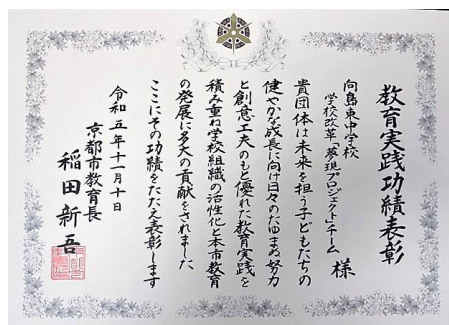 教育実践功績表彰
向島東中学校
学校改革「夢現プロジェクト」チーム 様
貴団体は未来を担う子どもたちの
健やかな成長に向け日々のたゆまぬ努力
と創意工夫のもと優れた教育実践を
積み重ね学校組織の活性化と本市教育
の発展に多大の貢献をされました
ここにその功績をたたえ表彰します
令和五年十一月十日
京都市教育長
稲田新吾